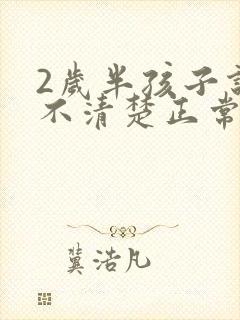 2歲半孩子說
不清楚正常
冀浩凡